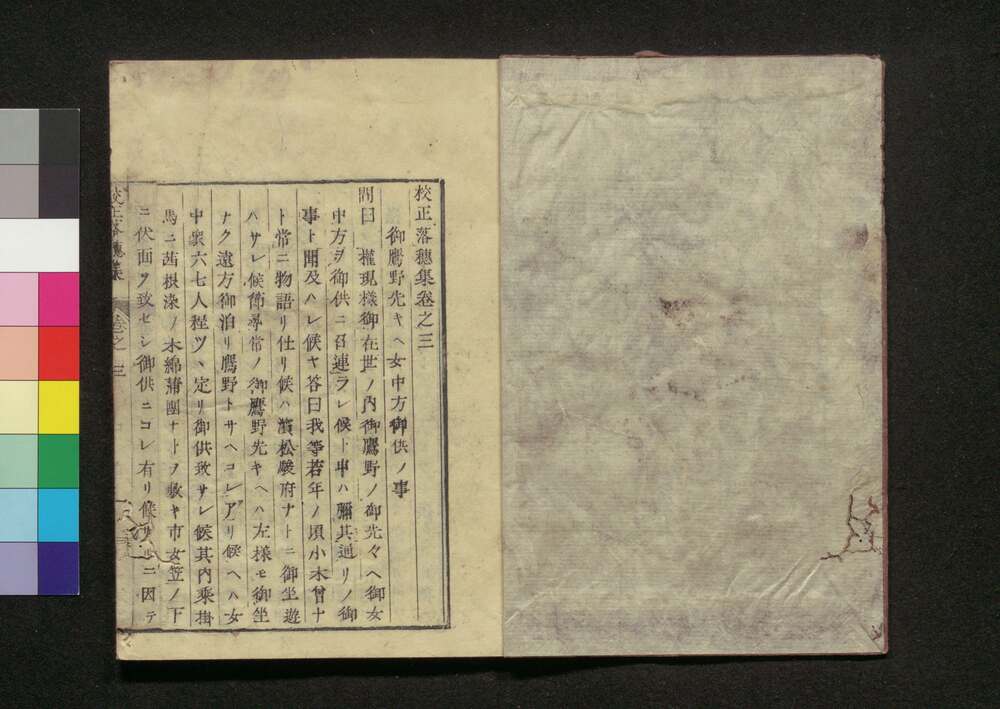 校正落穗集卷之三
御鷹野先キヘ女中方御供ノ事
問曰 權現樣御在世ノ內御鷹野ノ御先々ヘ御女
中方ヲ御供ニ召連ラレ候ト申ハ彌其通リノ御
事ト聞及ハレ候ヤ答曰我等若年ノ頃小木曾十
ト常ニ物語リ仕リ候ハ濱松駿府ナトニ御坐遊
ハサレ候節尋常ノ御鷹野先キヘハ左樣モ御坐
ナク遠方御泊リ鷹野トサヘコレアリ候ヘハ女
中衆六七人程ツヽ定リ御供致サレ候其內乘掛
馬ニ茜根染ノ木綿蒲團ナトヲ敷キ市女笠ノ下
ニ伏面ヲ致セシ御供ニコレ有リ候ニ因テ
校正落穗集 卷之三